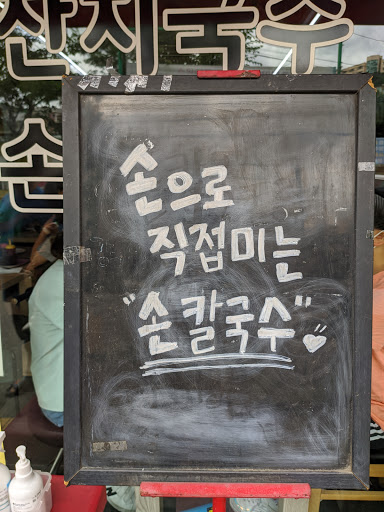 잔치국수
손
손으로
직접미는
"손칼국수"